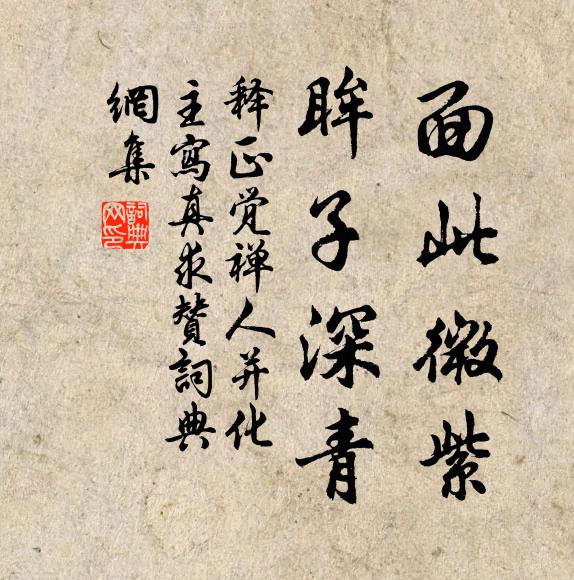 面此微紫
眸子深青
释正觉禅人并化
主寫真求赞詞典
網集
詞典
网印